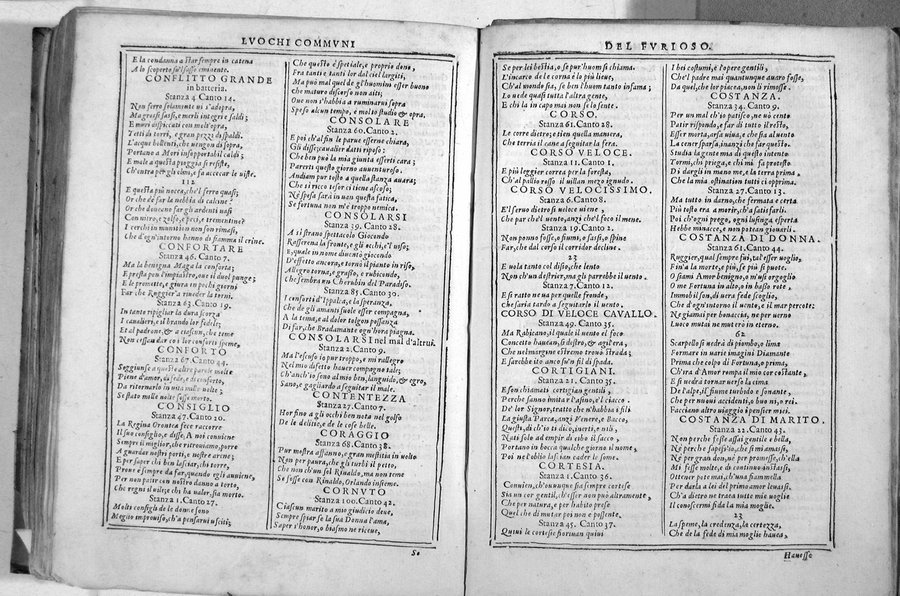 LVOCHI COMMVNI
E la condanna a star sempre in catena
A lo scoperto su'l sasso eminente.
CONFLITTO GRANDE
in batteria.
Stanza 4 Canto 14.
Non ferro solamente vi s'adopra,
Ma grossi sassi, e merli integri e saldi;
E muri dispiccati con molt'opra,
Tetti di torri, e gran pezzi di spaldi.
L'acque bollenti, che vengon di sopra,
Portano a Mori insopportabil caldi;
E male a questa pioggia si resiste,
Ch'entra per gli elmi, e fa accecar le viste.
112
E questa più nocea, che'l ferro quasi;
Or che de' far la nebbia di calcine?
Or che doveano far gli ardenti vasi
Con nitro, e zolfo, e peci, e trementine?
I cerchi in munition non son rimasi,
Che d'ogn'intorno hanno di fiamma il crine.
CONFORTARE
Stanza 46. Canto 7.
Ma la benigna Maga la conforta;
E presta pon l'impiastro, ove il duol punge;
E le promette, e giura in pochi giorni
Far che Ruggier'a riveder la torni.
Stanza 63. Canto 19.
In tanto ripigliar la dura scorza
I cavallieri, e il brando lor fedele;
Et al padrone, & a ciascun, che teme
Non cessan dar co i lor conforti speme,
CONFORTO
Stanza 67. Canto 44.
Soggiunse a queste altre parole molte
Piene d'amor, di fede, e di conforto,
Da ritornarlo in vita mille volte;
Se stato mille volte fosse morto.
CONSIGLIO
Stanza 47. Canto 20.
La Regina Orontea fece raccorre
Il suo consiglio, e disse, A noi conviene
Sempre il miglior, che ritroviamo, porre
A guardar nostri porti, e nostre arene;
E per saper chi ben lasciar, chi torre,
Prove è sempre da far, quando egli avviene,
Per non patir con nostro danno a torto,
Che regni il vile, e chi ha valor, sia morto.
Stanza 1. Canto 27.
Molti consigli de le donne sono
Meglio improviso, ch'a pensarvi usciti;
Che questo è spetiale, e proprio dono,
Fra tanti e tanti lor dal ciel largiti,
Ma può mal quel de gl'huomini esser buono
che maturo discorso non aiti;
Ove non s'habbia a ruminarvi sopra
Speso alcun tempo, e molto studio & opra.
CONSOLARE
Stanza 60. Canto 2.
E poi ch'al fin le parue esserne chiara,
Gli disse; cavalier datti riposo;
Che ben può la mia giunta esserti cara;
Parerti questo giorno auenturoso.
Andiam pur tosto a quella stanza avara;
Che sì ricco tesor ci tiene ascoso;
Né spesa sarà in van questa fatica,
Se fortuna non m'è troppo nemica.
CONSOLARSI
Stanza 39. Canto 28.
A sì strano spettacolo Giocondo
Rasserena la fronte, e gli occhi, e'l viso;
E, quale in nome diventò giocondo
D'effetto ancora, e tornò il pianto in riso,
Allegro torna, e grasso, e rubicondo,
Che sembra un Cherubin del Paradiso.
Stanza 85. Canto 30.
I conforti d'Ippalca, e la speranza,
Che de gli amanti suole esser compagna,
A la tema, e al dolor tolgon possanza
Di far, che Bradamante ogn'hora piagna.
CONSOLARSI nel mal d'altrui.
Stanza 2. Canto 9.
Ma l'escuso io pur troppo, e mi rallegro
Nel mio difetto haver compagno tale;
Ch'anch'io sono al mio ben, languido, & egro,
Sano, e gagliardo a seguitar il male.
CONTENTEZZA
Stanza 27. Canto 7.
Hor fino a gli occhi ben nota nel golfo
De le delitie, e de le cose belle.
CORAGGIO
Stanza 68. Canto 38.
Pur mostra affanno, e gran mestitia in volto
Non per paura, che gli turbi il petto,
Che non ch'un sol Rinaldo, ma non teme
Se fosse con Rinaldo, Orlando insieme.
CORNVTO
Stanza 100. Canto 42.
Ciascun marito a mio giudicio deve,
Sempre spiar se la sua Donna l'ama,
Saper l'honor, o biasmo ne riceve,
So
DEL FVRIOSO.
Se per lei bestia, o se pur'huom si chiama.
L'incarco de le corna è lo più lieve,
Ch'al mondo sia, se ben l'huom tanto infama;
Lo vede quasi tutta l'altra gente,
E chi la in capo mai non se lo sente.
CORSO.
Stanza 61. Canto 28.
Le corre dietro; e tien quella maniera,
Che terria il cane a seguitar la fera.
CORSO VELOCE.
Stanza 11. Canto 1.
E più leggier correa per la foresta,
Ch'al pallio rosso il villan mezo ignudo.
CORSO VELOCISSIMO.
Stanza 6. Canto 8.
E'l servo dietro sì veloce viene,
Che par che'l vento, anzi che'l foco il mene.
Stanza 19. Canto 2.
Non ponno fosse, o fiumi, o sassi, o spine
Far, che dal corso il corridor decline.
23
E vola tanto col disio, che lento
Non ch'un destrier, ma gli parrebbe il vento.
Stanza 7. Canto 12.
E sì ratto ne va per quelle fronde,
Che saria tardo a seguitarlo il vento.
CORSO DI VELOCE CAVALLO.
Stanza 49. Canto 35.
Ma Rabicano, il quale il vento el foco
Concetto havean, sì destro, & agil'era,
Che nel margine estremo trovò strada;
E sarebbe ito anco su'n fil di spada.
CORTIGIANI.
Stanza 21. Canto 35.
E son chiamati cortigian gentili,
Perche sanno imitar l'asino, e'l ciacco.
De' lor Signor, tratto che n'habbia i fili
La giusta Parca, anzi Venere, e Bacco,
Questi, di ch'io ti dico, inerti, e vili,
Nati solo ad empir di cibo il sacco,
Portano in bocca qualche giorno il nome,
Poi ne l'oblio lascian cader le some.
CORTESIA.
Stanza 1. Canto 36.
Convien, ch'ovunque sia sempre cortese
Sia un cor gentil, ch'esser non può altramente,
Che per natura, e per habito prese
Quel che di mutar poi non è possente.
Stanza 45. Canto 37.
Quivi le cortesie fiorivan quivi
I bei costumi, e l'opere gentili,
Che'l padre mai quantunque avaro fosse,
Da quel, che lor piacea, non li rimosse.
COSTANZA.
Stanza 34. Canto 9.
Per un mal ch'io patisco, ne vò cento
Patir rispondo, e far di tutto il resto,
Esser morta, arsa viva, e che sia al vento
La cener sparsa, inanzi che far questo.
Studia la gente mia di questo intento
Tormi, chi priega, e chi mi fa protesto
Di dargli in mano me, e la terra prima,
Che la mia ostination tutti ci opprima.
Stanza 27. Canto 13.
Ma tutto in darno, che fermata e certa
Più tosto era a morir, ch'a satisfarli.
Poi ch'ogni prego, ogni lusinga esperta
Hebbe minacce, e non potean giovarli.
COSTANZA DI DONNA.
Stanza 61. Canto 44.
Ruggier, qual sempre fui, tal'esser voglio,
Fin'a la morte, e più, se più si puote.
O siami Amor benigno, o m'usi orgoglio
O me Fortuna in alto, o in basso rote,
Immobil son, di vera fede scoglio,
Che d'ogn'intorno il vento, e il mar percote:
Ne giamai per bonaccia, ne per verno
Luoco mutai ne muterò in eterno.
62
Scarpello si vedrà di piombo, o lima
Formare in varie imagini Diamante
Prima che colpo di Fortuna, o prima,
Ch'ira d'Amor rompa il mio cor costante,
E si vedrà tornar verso la cima
De l'alpe, il fiume turbido e sonante,
Che per nuovi accidenti, o buoni, o rei.
Facciano altro viaggio i pensier miei.
COSTANZA DI MARITO.
Stanza 22. Canto 43.
Non perche fosse assai gentile e bella,
Né perche sapess'io, che sì mi amassi,
Né per gran don, né per promesse, ch'ella
Mi fesse molte, e di continuo instassi,
Ottener potè mai, ch'una fiammella
Per darla a lei del primo amor levassi,
Ch'a dietro ne traea tutte mie voglie
Il conoscermi fida la mia moglie.
23
La speme, la credenza, la certezza,
Che de la fede di mia moglie havea,
Havesse